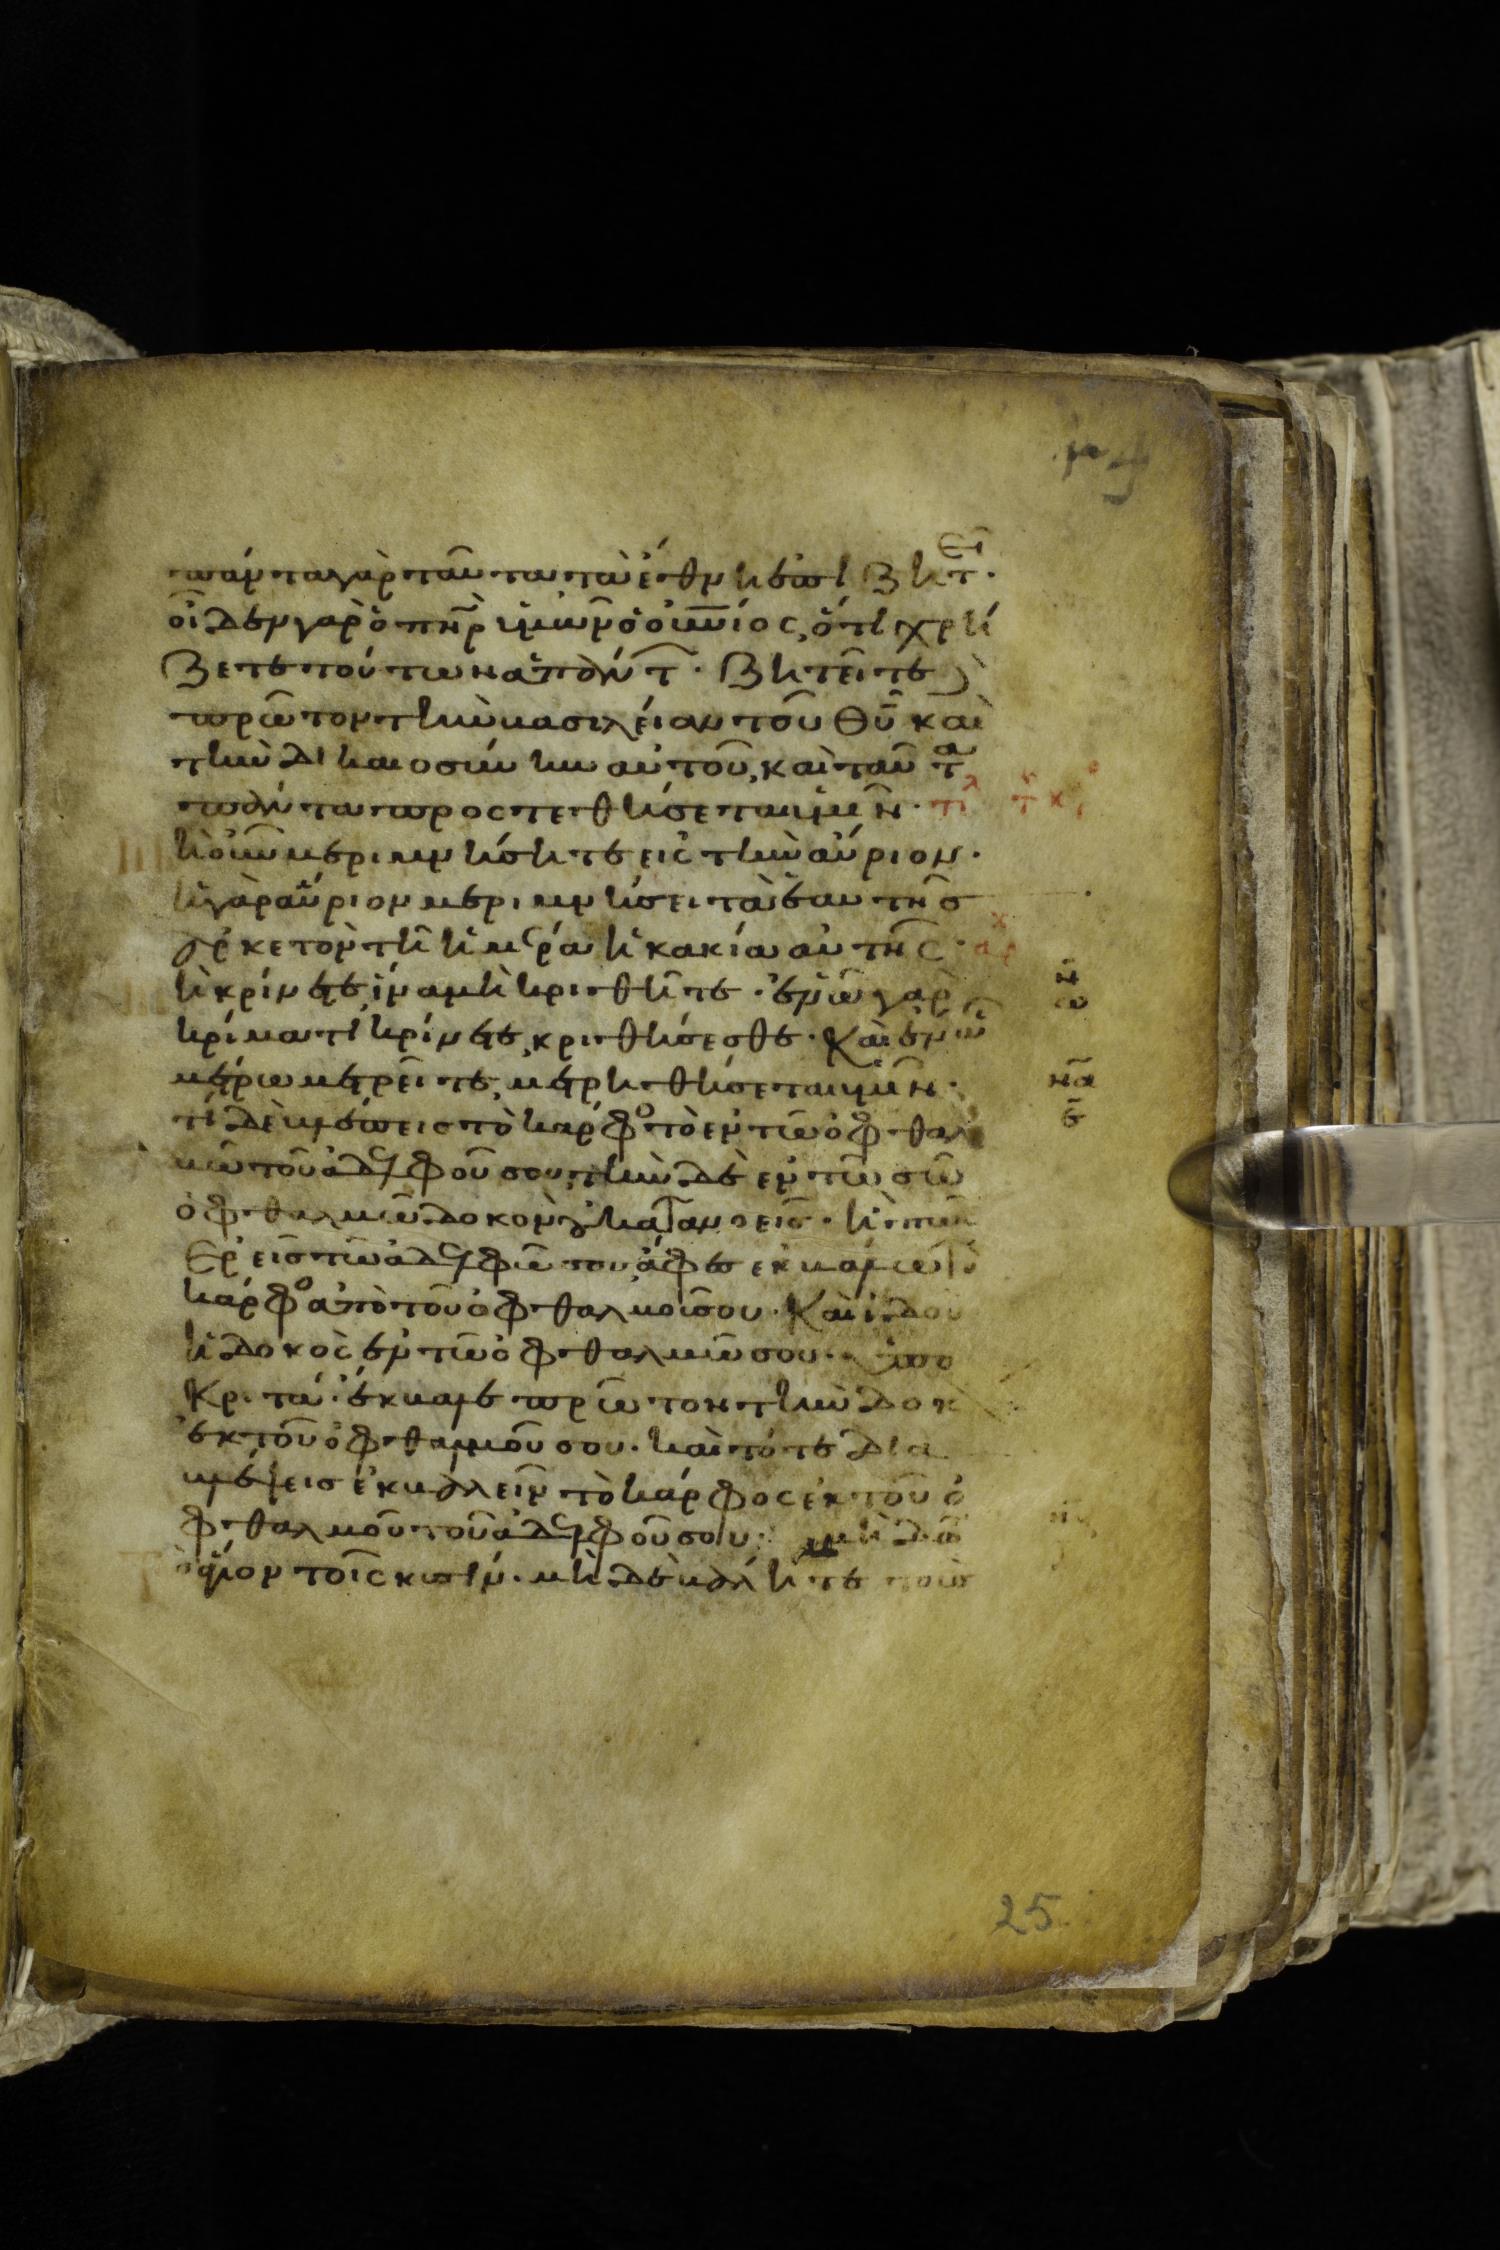 πάντα γὰρ ταῦτα τὰ ἔθνη ἐπιζητεῖ·
οἶδεν γὰρ ὁ πηρ ὑμῶν ὁ οὐνιος, ὅτι χρή
ζετε τούτων ἁπάντ· ζητεῖτε δὲ
πρῶτον τὴν βασιλείαν τοῦ θυ καὶ
τὴν δικαιοσύνην αὐτοῦ, καὶ ταῦτα
πάντα προστεθήσεται ὑμῖν· τέλ
ὴ οὖν μεριμνήσητε εἰς τὴν αὔριον·
ἡ γὰρ αὔριον μεριμνήσει τὰ ἑαυτῆς
ἀρκετὸν τῆ ἡμέρα ἡ κακία αὐτῆς· αρχ
ὴ κρίνετε ἵνα μὴ κριθῆτε· ἐν ὧ γὰρ
κρίματι κρίνετε, κριθήσεσθε· καὶ ἐν ὧ
μέτρω μετρεῖτε, μετρηθήσεται ὑμῖν·
τί δὲ βλέπεις τὸ κάρφο τὸ ἐν τῶ ὀφθαλ
μῶ τοῦ ἀδελφοῦ σου, τὴν δὲ ἐν τῶ σῶ
ὀφθαλμῶ δοκὸν οὐ κατανοεῖς· ἢ πῶς
ἐρεῖς τῶ ἀδελφῶ σου, ἄφες ἐκβάλω τὸ
κάρφο ἀπὸ τοῦ ὀφθαλμοῦ σου· καὶ ἰδοὺ
ἡ δοκὸς ἐν τῶ ὀφθαλμῶ σου· ὑπο
κριτά· ἔκβαλε πρῶτον τὴν δοκ
ἐκ τοῦ ὀφθαλμοῦ σου· καὶ τότε δια
βλέψεις ἐκβαλεῖν τὸ κάρφος ἐκ τοῦ ὀ
φθαλμοῦ τοῦ ἀδελφοῦ σου· μὴ δῶ
ἅγιον τοῖς κυσίν· μὴ δὲ βάλητε τοὺς
25